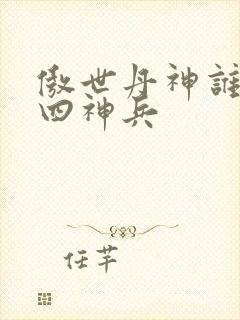 傲世丹神誰
四神兵
任芊